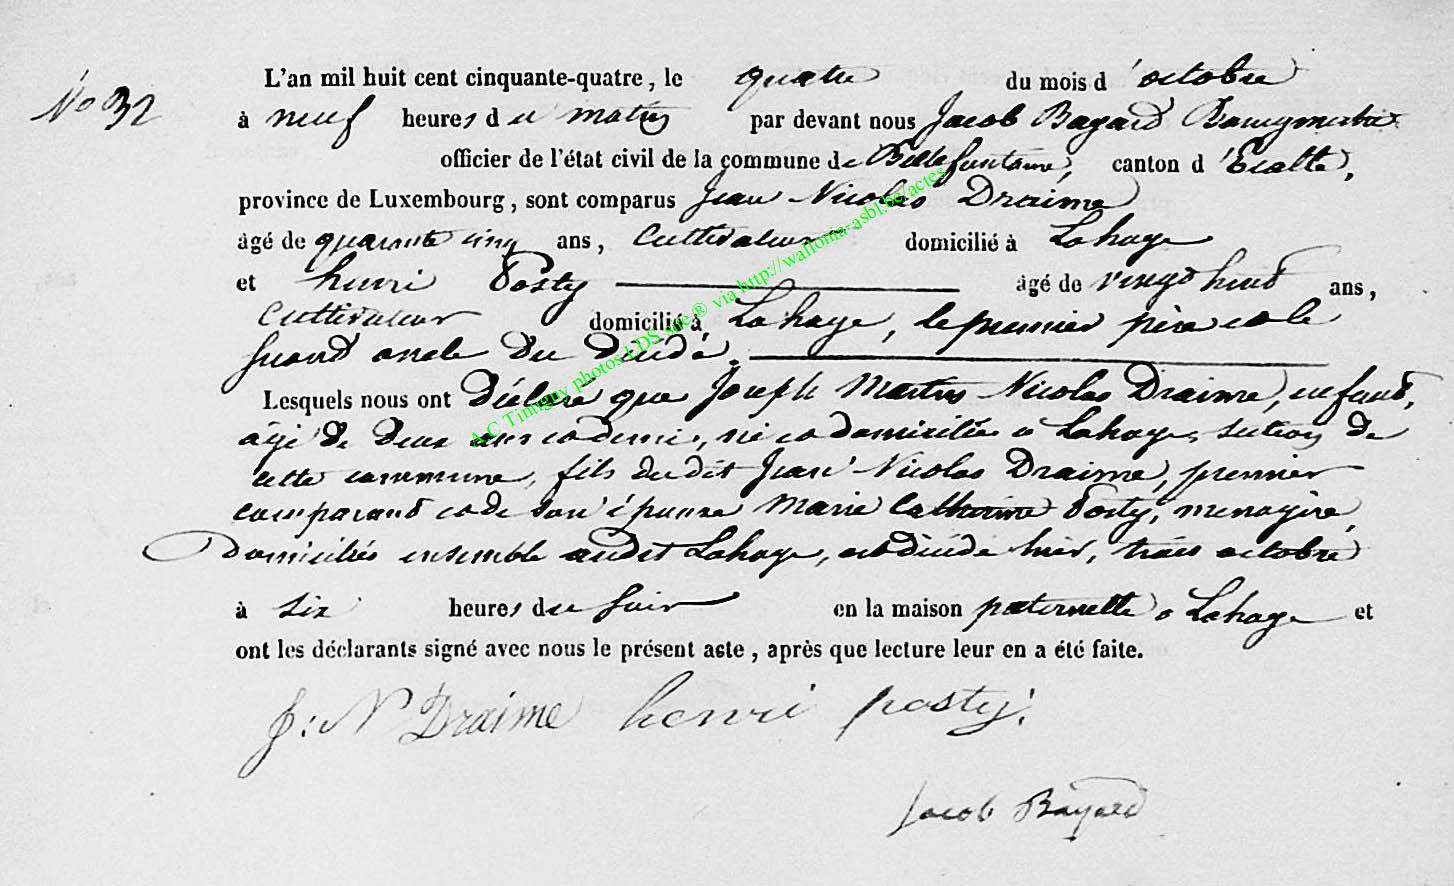 No 32
L'an mil huit cent cinquante-quatre, le quatre du mois d'octobre
à neuf heures du matin par devant nous Jacob Bayard Bourgmestre
officier de l'état civil de la commune de Bellefontaine, canton d'Etalle,
province de Luxembourg, sont comparus Jean Nicolas Draime
âgé de quarante cinq ans, cultivateur domicilié à Lahage
et henri Posty âgé de vingt huit ans,
cultivateur domicilié à Lahage, le premier père et le
second oncle du décédé.
Lesquels nous ont déclaré que Joseph Martin Nicolas Draime, enfant,
âgé de deux ans et demi, né et domicilié à Lahage, section de
cette commune, fils du dit Jean Nicolas Draime, premier
comparant et de son épouse Marie Catherine Posty, ménagère,
domiciliés ensemble audit Lahage, est décédé hier, trois octobre
à six heures du soir en la maison paternelle à Lahage et
ont les déclarants signé avec nous le présent acte, après que lecture leur en a été faite.
J: N Draime henri posty.
Jacob Bayard
AC Tintigny photos LDS site ® via http://wallonia-asbl.be/actes